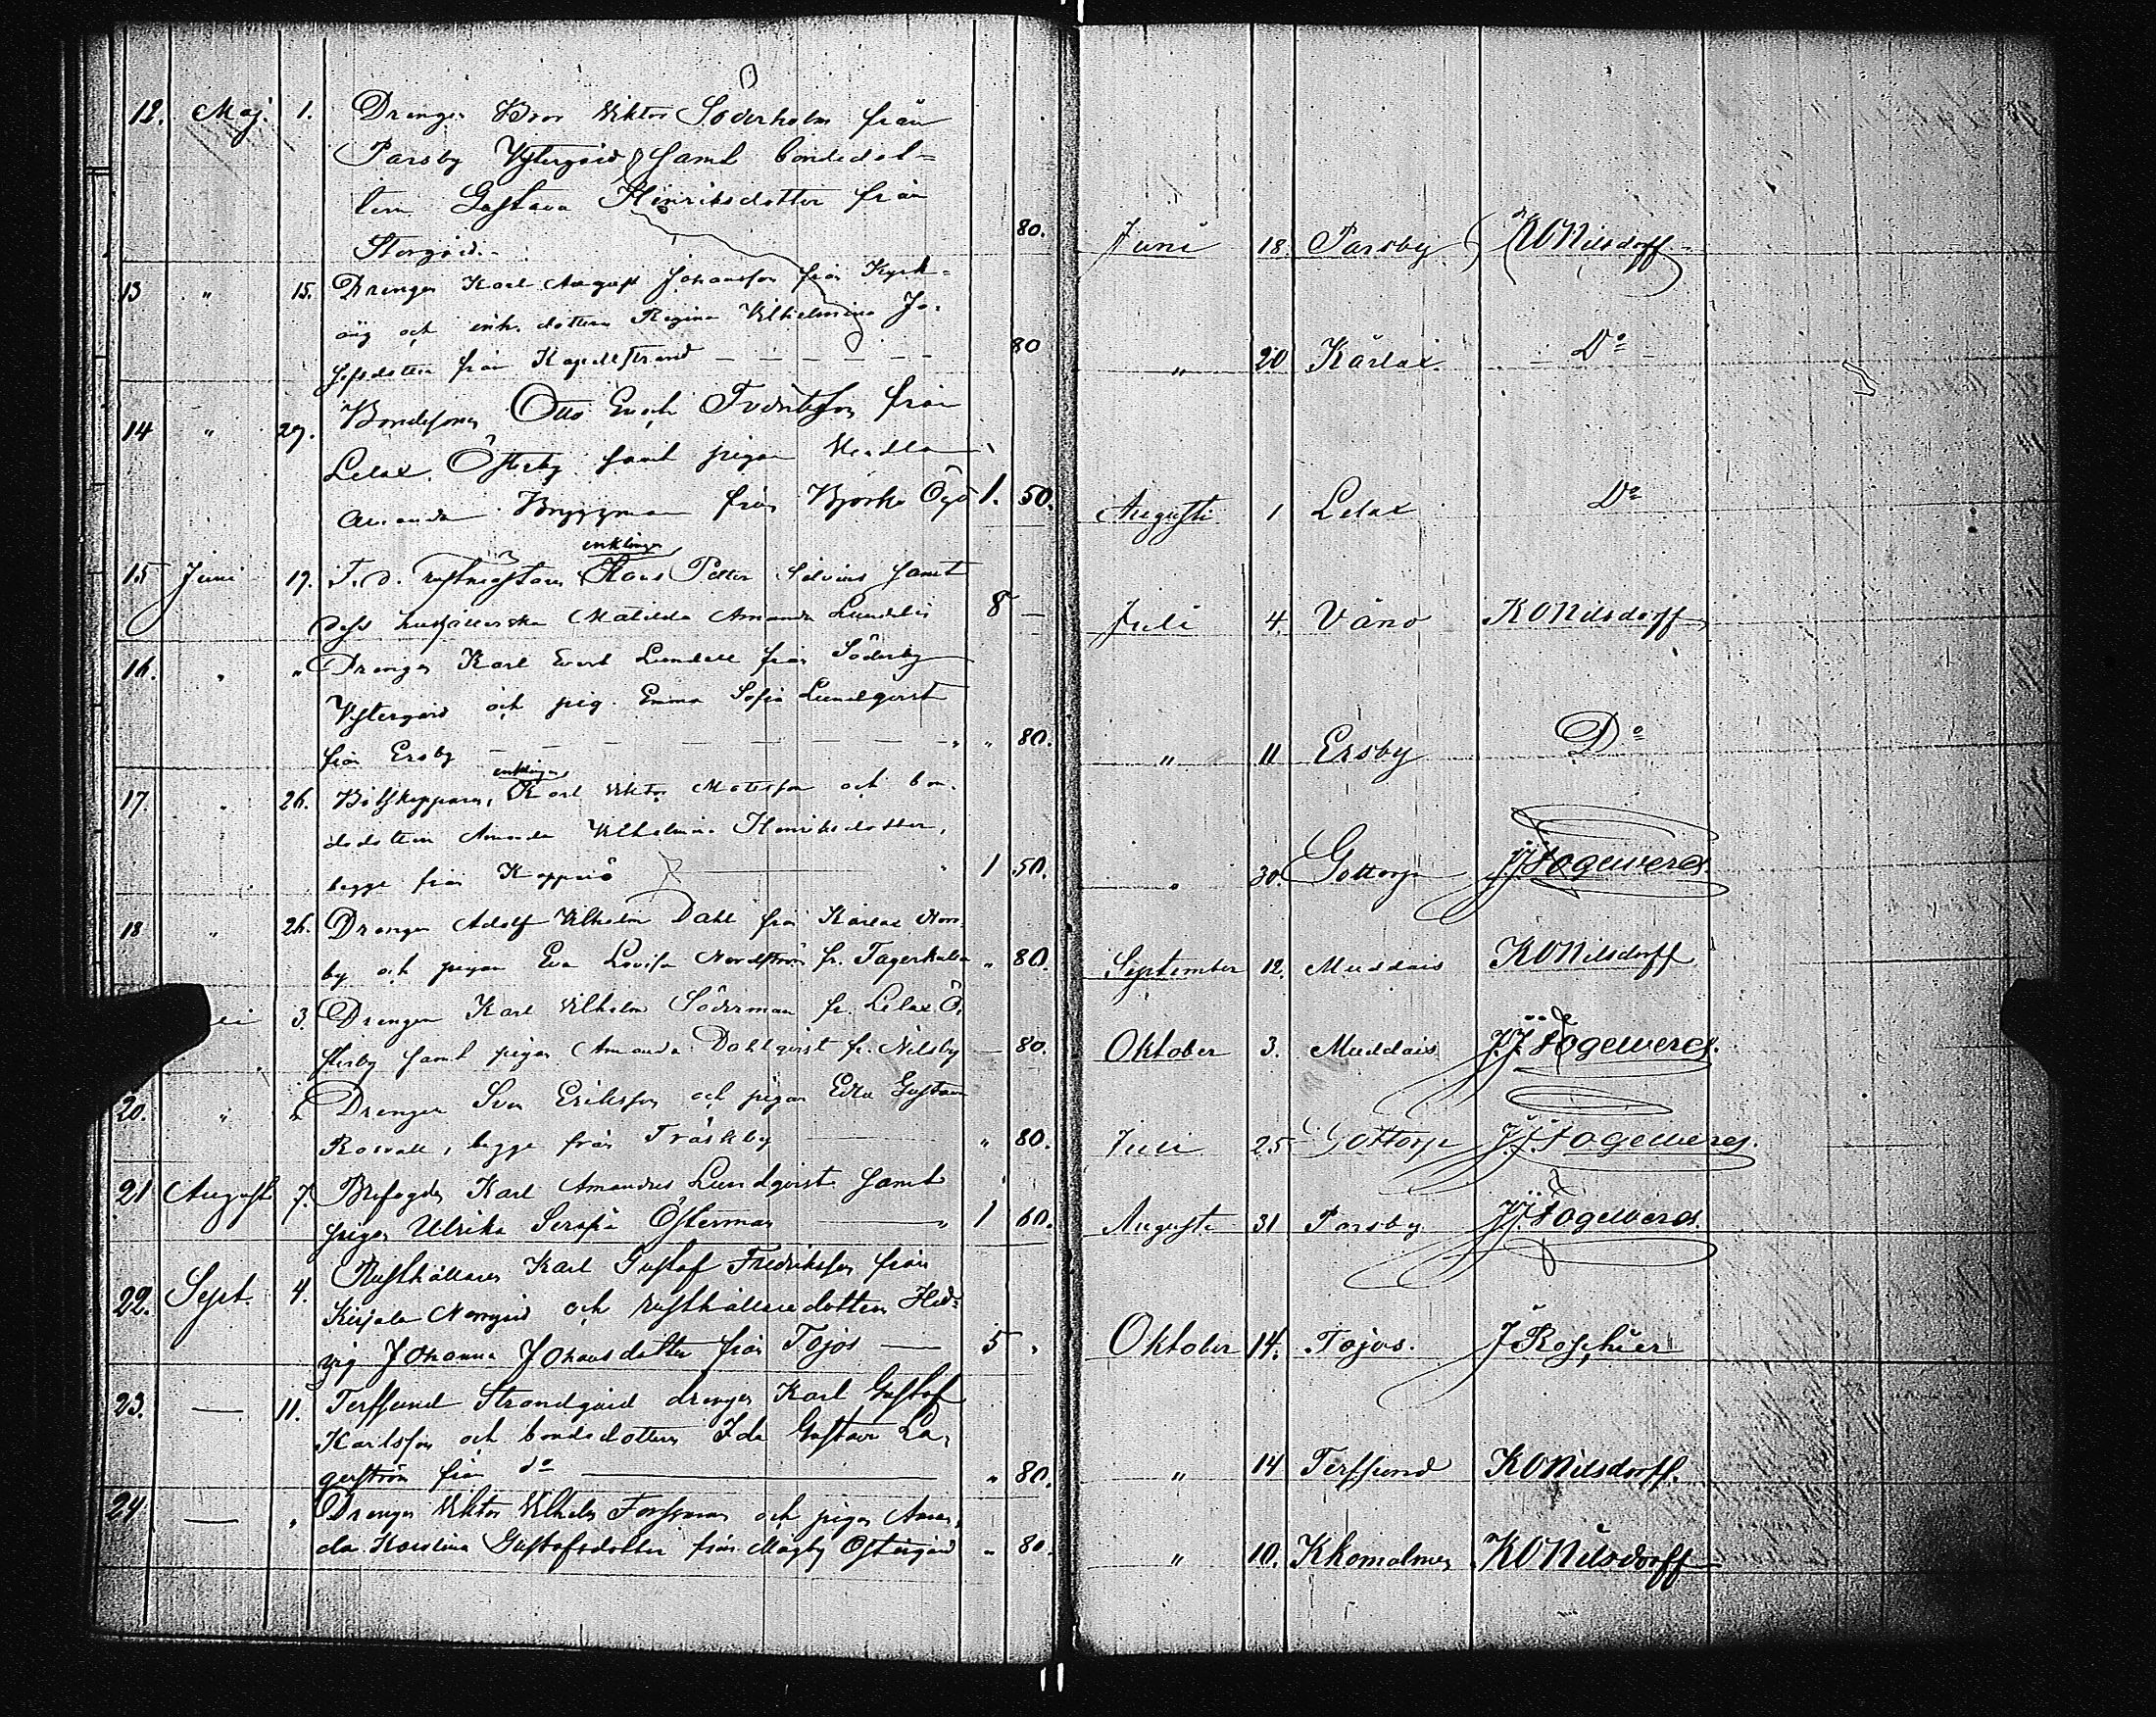 12. Maj. 1. Drengen Bror Viktor Söderholm från
Parsby Yttergård samt bondedot=
tern Gustava Henriksdotter från
Storgård. 80. Juni 18. Parsby KONilsdorff
13 " 15. Drengen Karl August Johansson från Kyrk=
äng och inh. dottern Regina Vilhelmina Jo=
sefsdotter från Kapellstrand 80 " 20 Kärlax Do
14 " 27. Bondesonen Otto Enoch Fredriksson från
Lelax Österby samt pigan Hedda
Amanda Bryggman från Björkö 1. 50. Augusti 1 Lelax Do
enklingen
15 Juni 19. F. d. Klas Petter samt
dess hushållerska Matilda Amanda 8 – Juli 4. Våno KONilsdorff
16. " " Drengen Karl Evert Lundell från Söderby
Yttergård och pig. Emma Sofia Lundqvist
från Ersby " 80. " 11 Ersby Do
enklingen
17. " 26. Båtskepparen, Karl Viktor Matsson och bon-
dedottern Amanda Vilhelmina Henriksdotter,
begge från Koppnö 1 50. " 30. Gottorp JJFogewerd.
18 " 26. Drengen Adolf Vilhelm Dahl från Kärlax Norr-
by och pigan Eva Lovisa Nordström fr. Tagerkulla " 80. September 12. Muddais KONilsdorff
3. Drengen Karl Vilhelm Söderman fr. Lelax Ö-
sterby samt pigan Amanda Dahlqvist fr. Nilsby – 80. Oktober 3. Muddais J.J.Fogewerd.
20. " " Drengen Sven Eriksson och pigan Edla Gustava
Rosvall, begge från Träskby " 80. Juli 25 Gottorp J.J.Fogewerd.
21 August 7. Karl Amandus Lundqvist samt
pigan Ulrika Serafia Österman " 1 60. Augusti 31 Parsby JJFogewerd.
22. Sept. 4. Rusthållaren Karl Gustaf Fredriksson från
Kirjala Norrgård och rusthållaredottern Hed=
vig Johanna Johansdotter från Tojos 5 " Oktober 14. Tojos. J Roschier
23. — 11. Terssund Strandgård drengen Karl Gustaf
Karlsson och bondedottern Ida Gustava La-
gerström från do " 80. " 14 Terssund KONilsdorff.
24 — " Drengen Viktor Vilhelm Forssman och pigan Aman-
da Karolina Gustafsdotter från Mågby Östergård " 80. " 10. Kkomalmen KONilsdorff